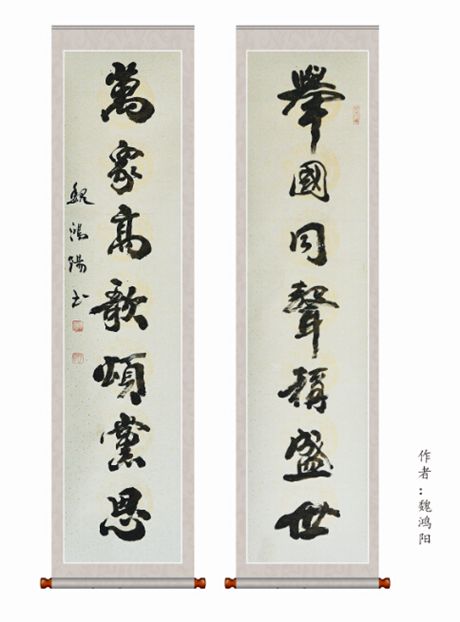 舉國同聲稱盛世
萬家高歌頌黨恩
魏鴻陽书
作者：魏鸿阳